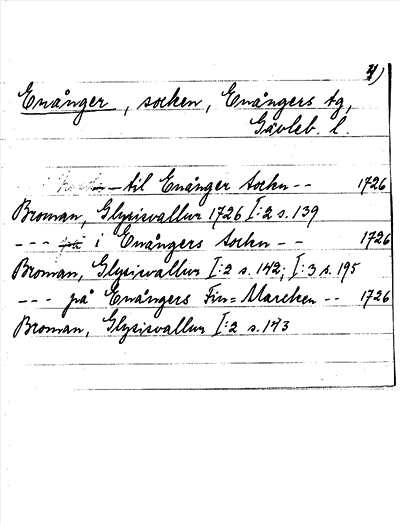 4)
Enånger, socken, Enångers tg,
Gävleb. l.
– til Enånger Sockn -- 1726
Broman, Glysisvallur 1726 I:2 s. 139
--- i Enångers Sockn -- 1726
Broman, Glysisvallur I:2 s. 142; I:3 s. 195
--- på Enångers Fin=Marcken -- 1726
Broman, Glysisvallur I:2 s. 143